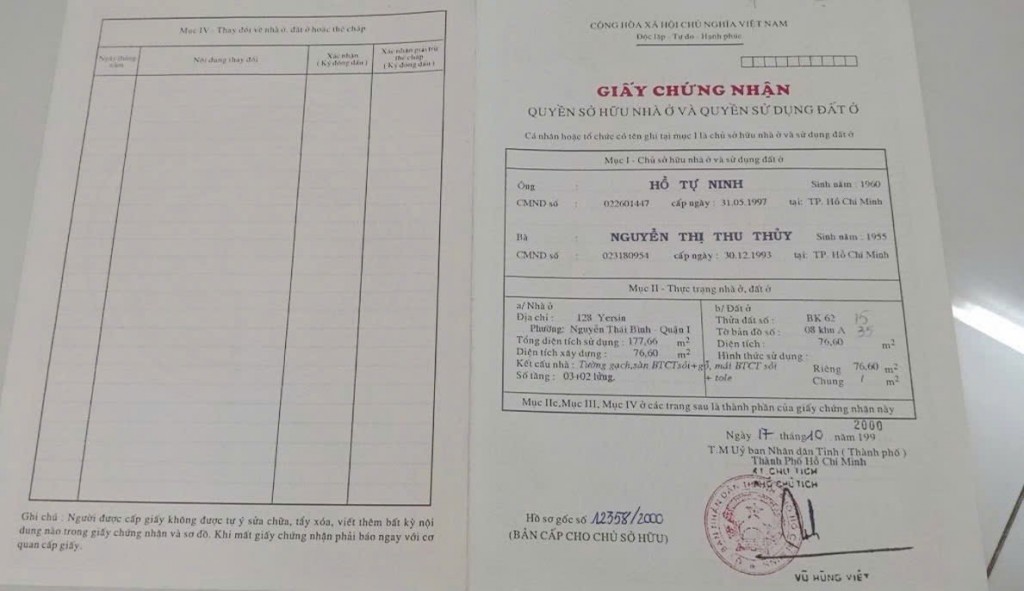 Mục IV - Thay đổi về nhà ở, đất ở hoặc thế chấp
Ngày tháng năm
Nội dung thay đổi
Xác nhận
( Ký đóng dấu )
Xác nhận giải trừ thế chấp
( Ký đóng dấu )
Ghi chú : Người được cấp giấy không được tự ý sửa chữa, tẩy xóa, viết thêm bất kỳ nội
dung nào trong giấy chứng nhận và sơ đồ. Khi mất giấy chứng nhận phải báo ngay với cơ
quan cấp giấy.
CỘNG HÒA XÃ HỘI CHỦ NGHĨA VIỆT NAM
Độc lập - Tự do - Hạnh phúc
GIẤY CHỨNG NHẬN
QUYỀN SỞ HỮU NHÀ Ở VÀ QUYỀN SỬ DỤNG ĐẤT Ở
Cá nhân hoặc tổ chức có tên ghi tại mục I là chủ sở hữu nhà ở và sử dụng đất ở
Mục I - Chủ sở hữu nhà ở và sử dụng đất ở
Ông : HỒ TỰ NINH Sinh năm : 1960
CMND số : 022601447 cấp ngày : 31.05.1997 tại: TP. Hồ Chí Minh
Bà : NGUYỄN THỊ THU THỦY Sinh năm : 1955
CMND số : 023180954 cấp ngày : 30.12.1993 tại: TP. Hồ Chí Minh
Mục II - Thực trạng nhà ở, đất ở
a/ Nhà ở
Địa chỉ : 128 Yersin
Phường: Nguyễn Thái Bình - Quận I
Tổng diện tích sử dụng : 177,66 m2
Diện tích xây dựng : 76,60 m2
Kết cấu nhà : Tường gạch,sàn BTCTsỏi+gỗ, mái BTCT sỏi
+ tole
Số tầng : 03+02 lửng.
b/ Đất ở
Thửa đất số : BK 62 15
Tờ bản đồ số : 08 khu A 35
Diện tích : 76,60 m2
Hình thức sử dụng :
Riêng 76,60 m2
Chung / m2
Mục IIc,Mục III, Mục IV ở các trang sau là thành phần của giấy chứng nhận này
2000
Ngày 17 tháng 10 năm 199
T.M Uỷ ban Nhân dân Tỉnh ( Thành phố )
Thành Phố Hồ Chí Minh
KT CHỦ TỊCH
PHÓ CHỦ TỊCH
Hồ sơ gốc số 12358/2000
(BẢN CẤP CHO CHỦ SỞ HỮU)
VŨ HÙNG VIỆT